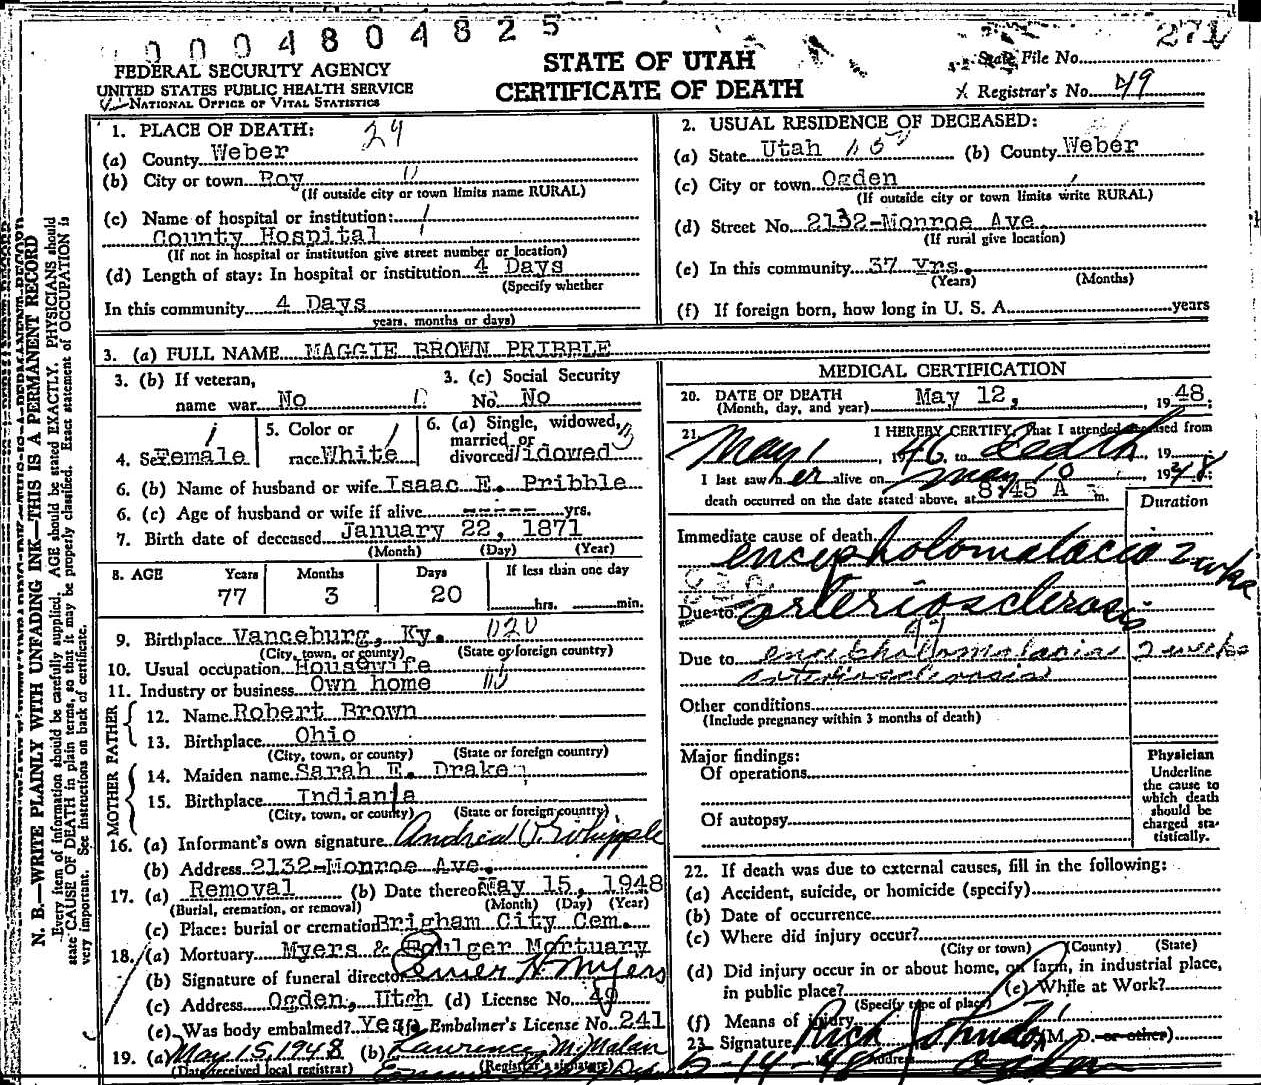 0004804825
271
FEDERAL SECURITY AGENCY
UNITED STATES PUBLIC HEALTH SERVICE
NATIONAL OFFICE OF VITAL STATISTICS
STATE OF UTAH
CERTIFICATE OF DEATH
State File No.
Registrar's No. 49
N. B.—WRITE PLAINLY WITH UNFADING INK—THIS IS A PERMANENT RECORD
Every item of information should be carefully supplied. AGE should be stated EXACTLY. PHYSICIANS should
state CAUSE OF DEATH in plain terms, so that it may be properly classified. Exact statement of OCCUPATION is
very important. See instructions on back of certificate.
1. PLACE OF DEATH: 29
(a) County Weber
(b) City or town Roy
(If outside city or town limits name RURAL)
(c) Name of hospital or institution:
County Hospital
(If not in hospital or institution give street number or location)
(d) Length of stay: In hospital or institution 4 Days
(Specify whether
In this community 4 Days
years, months or days)
2. USUAL RESIDENCE OF DECEASED:
(a) State Utah (b) County Weber
(c) City or town Ogden
(If outside city or town limits write RURAL)
(d) Street No. 2132-Monroe Ave.
(If rural give location)
(e) In this community 37 Yrs.
(Years) (Months)
(f) If foreign born, how long in U. S. A. years
3. (a) FULL NAME MAGGIE BROWN PRIBBLE
3. (b) If veteran,
name war No
3. (c) Social Security
No. No
4. Sex Female
5. Color or
race White
6. (a) Single, widowed,
married, or
divorced Widowed
6. (b) Name of husband or wife Isaac E. Pribble
6. (c) Age of husband or wife if alive ----- yrs.
7. Birth date of deceased January 22, 1871
(Month) (Day) (Year)
8. AGE Years Months Days If less than one day
77 3 20 hrs. min.
9. Birthplace Vanceburg, Ky.
(City, town, or county) (State or foreign country)
10. Usual occupation Housewife
11. Industry or business Own home
FATHER
12. Name Robert Brown
13. Birthplace Ohio
(City, town, or county) (State or foreign country)
MOTHER
14. Maiden name Sarah E. Drake
15. Birthplace Indiana
(City, town, or county) (State or foreign country)
16. (a) Informant's own signature Andrew Whipple
(b) Address 2132-Monroe Ave.
17. (a) Removal (b) Date thereof May 15, 1948
(Burial, cremation, or removal) (Month) (Day) (Year)
(c) Place: burial or cremation Brigham City Cem.
18. (a) Mortuary Myers & Foulger Mortuary
(b) Signature of funeral director Myers
(c) Address Ogden, Utah (d) License No. 49
(e) Was body embalmed? Yes Embalmer's License No. 241
19. (a) May 15, 1948 (b) Lawrence M. Malan
(Date received local registrar) (Registrar's signature)
MEDICAL CERTIFICATION
20. DATE OF DEATH May 12, , 1948;
(Month, day, and year)
21. I HEREBY CERTIFY, That I attended deceased from
May 1 , 1946, to death , 19
I last saw her alive on May 10 , 1948;
death occurred on the date stated above, at 8:45 A m.
Duration
Immediate cause of death
encepholomalacia 2 wks
Due to arteriosclerosis
Due to encepholomalacia 2 weeks
arteriosclerosis
Other conditions
(Include pregnancy within 3 months of death)
Major findings:
Of operations
Of autopsy
Physician
Underline
the cause to
which death
should be
charged sta-
tistically.
22. If death was due to external causes, fill in the following:
(a) Accident, suicide, or homicide (specify)
(b) Date of occurrence
(c) Where did injury occur?
(City or town) (County) (State)
(d) Did injury occur in or about home, on farm, in industrial place,
in public place? (e) While at Work?
(Specify type of place)
(f) Means of injury
23. Signature Rich Johnston (M. D. or other)
5-14-48 Address Ogden